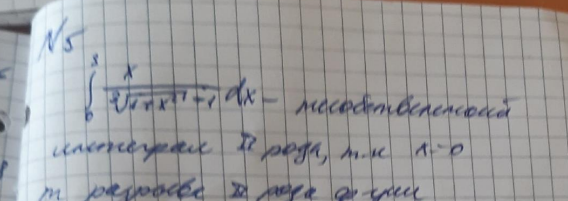 N 5
\int_0^3 \frac{x}{\sqrt[3]{1+x^2}-1} dx - несобственной
интеграл II рода, т.к x=0
т разрыва II рода ф-ции